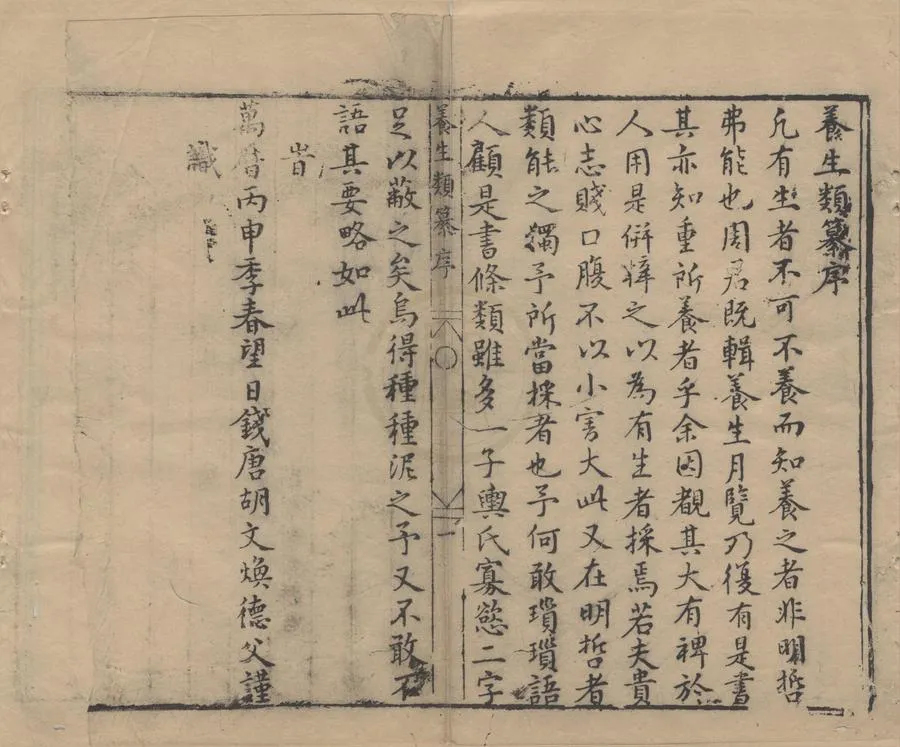 養生類纂序
凡有生者不可不養而知養之者非明哲
弗能也周君既輯養生月覽乃復有是書
其亦知重所養者乎余因覩其大有裨於
人用是併梓之以為有生者採焉若夫貴
心志賤口腹不以小害大此又在明哲者
類能之獨予所當採者也予何敢瑣瑣語
人顧是書條類雖多一子輿氏寡慾二字
養生類纂序 一
足以蔽之矣烏得種種泥之予又不敢不
語其要略如此
旹
萬曆丙申季春望日錢唐胡文煥德父謹
識